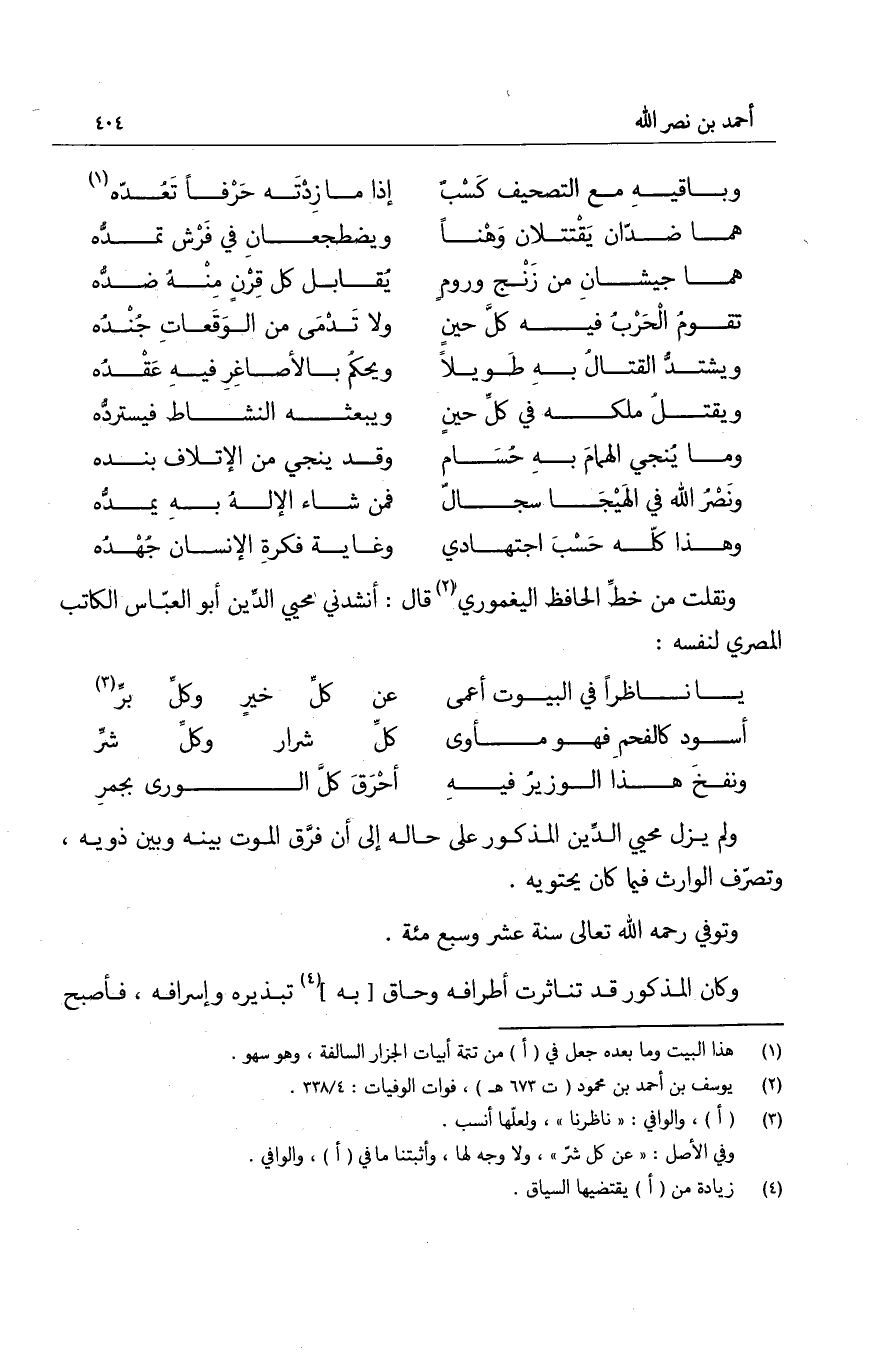 أحمد بن نصر الله ٤٠٤
وبـاقيـه مـع التصحيف كَسْبٌ إذا مـا زِدْتَـه حَرْفـاً تَعُـدّه (١)
همـا ضـدّان يَقْتتـلان وَهْنـاً ويضطجعـان في فَرْش تمـدُّه
همـا جيشـان من زَنْج ورومٍ يُقـابـل كل قِرْنٍ مِنْـهُ ضـدُّه
تقـومُ الْحَرْبُ فيـه كلَّ حينٍ ولا تَـدْمَى من الـوَقَعـاتِ جُنْـدُه
ويشتـدُّ القتـالُ بـه طَـويـلاً ويحكمُ بـالأصـاغرِ فيـه عَقْـدُه
ويقتـلُ ملكـه في كلِّ حينٍ ويبعثـه النشـاط فيستردُّه
ومـا يُنجي الهمامَ بـه حُسَـام وقـد ينجي من الإتـلاف بنـده
ونَصْرُ الله في الهَيْجَـا سجـالٌ فمن شـاء الإلـهُ بـه يمـدُّه
وهـذا كلّـه حَسْبَ اجتهـادي وغـايـة فكرةِ الإنسـان جُهْـدُه
ونقلت من خطِّ الحافظ اليغموري (٢) قال : أنشدني محيي الدِّين أبو العبّاس الكاتب
المصري لنفسه :
يـا نـاظراً في البيـوت أعمى عن كلِّ خيرٍ وكلِّ برِّ (٣)
أسـود كالفحمِ فهـو مـأوى كلِّ شرار وكلِّ شرِّ
ونفـخَ هـذا الـوزيرُ فيـهِ أحْرَقَ كلَّ الـورى بجمرِ
ولم يـزل محيي الـدِّين المـذكـور على حـالـه إلى أن فرَّق المـوت بينـه وبين ذويـه ،
وتصرّف الوارث فيما كان يحتويه .
وتوفي رحمه الله تعالى سنة عشر وسبع مئة .
وكان المـذكور قـد تنـاثرت أطرافـه وحـاق [ بـه ] (٤) تبـذيره وإسرافـه ، فـأصبح
(١) هذا البيت وما بعده جعل في ( أ ) من تتمة أبيات الجزار السالفة ، وهو سهو .
(٢) يوسف بن أحمد بن محمود ( ت ٦٧٣ هـ ) ، فوات الوفيات : ٣٣٨/٤ .
(٣) ( أ ) ، والوافي : « ناظرنا » ، ولعلّها أنسب .
وفي الأصل : « عن كل شرّ » ، ولا وجه لها ، وأثبتنا ما في ( أ ) ، والوافي .
(٤) زيادة من ( أ ) يقتضيها السياق .